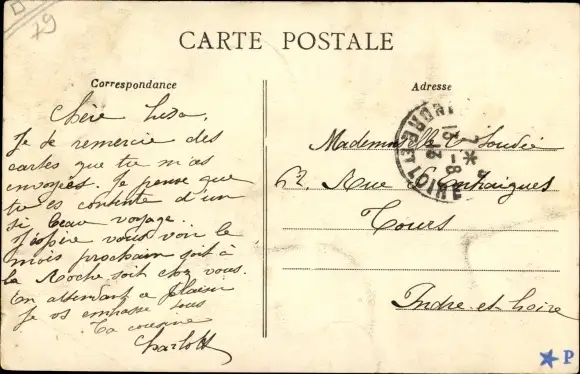 79
CARTE POSTALE
Correspondance
Adresse
Chère
Je te remercie des
cartes que tu m'as
envoyées. Je pense que
tu es contente d'un
si beau voyage.
J'espère vous voir le
mois prochain soit à
la Roche soit chez vous.
En attendant ce plaisir
Je vs embrasse tous
Ta cousine
Charlott
Mademoiselle
62, Rue
Tours
Indre-et-Loire
INDRE-ET-LOIRE
7 * 
13-8
P